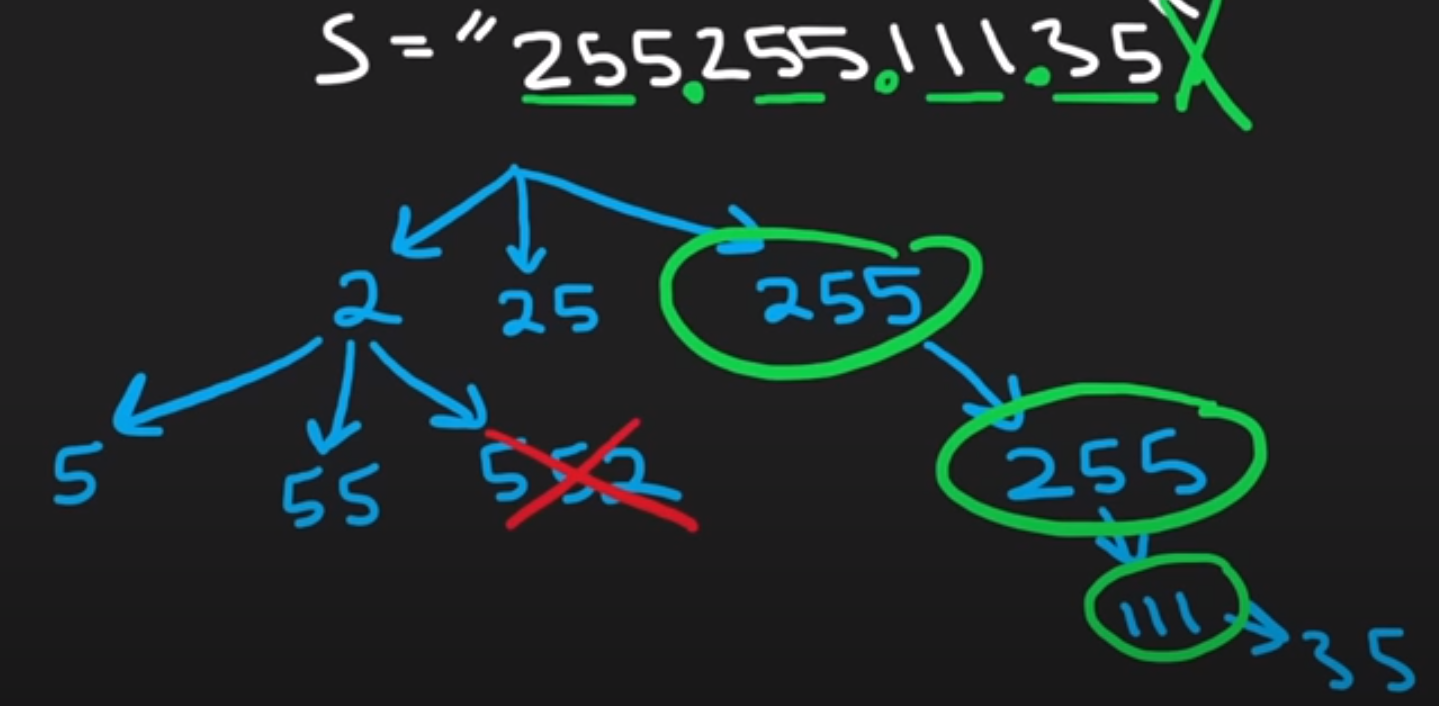 S = "255.255.111.35"
2 25 255
5 55 552 255
111
35